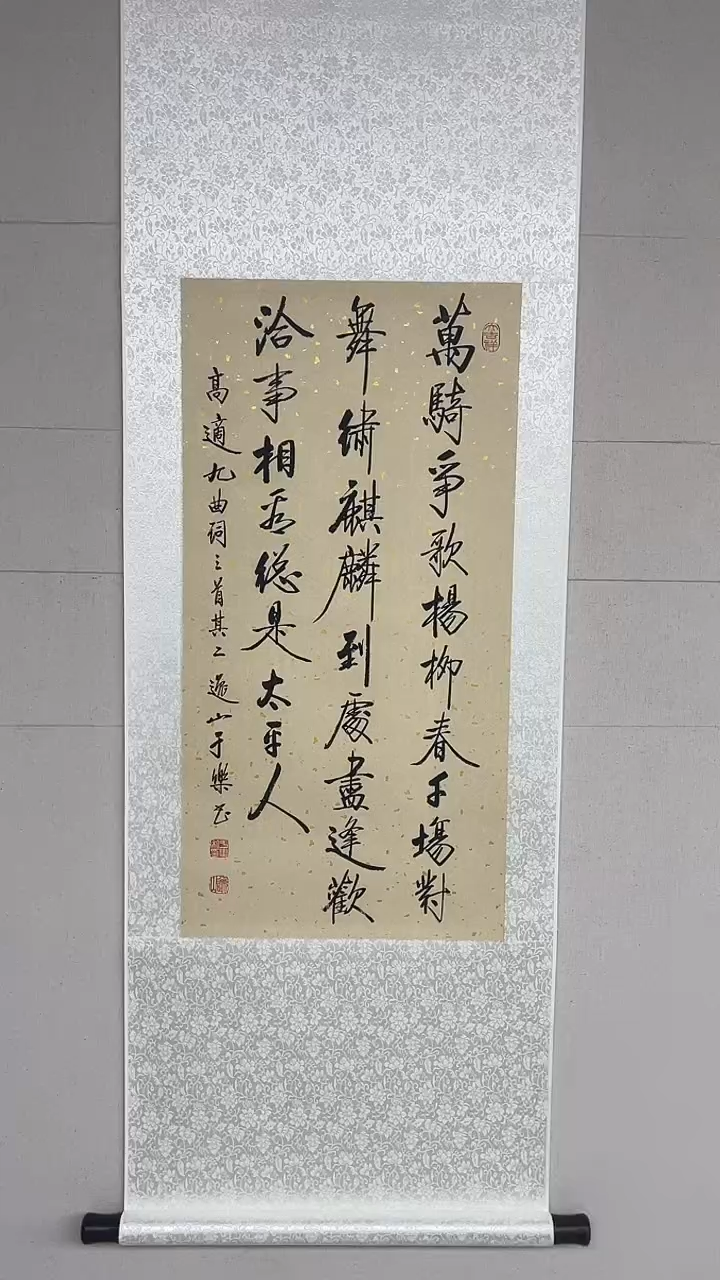 萬騎爭歌楊柳春千場對
舞繡麒麟到處盡逢歡
洽事相看總是太平人
高適九曲詞三首其二 逸山于樂书